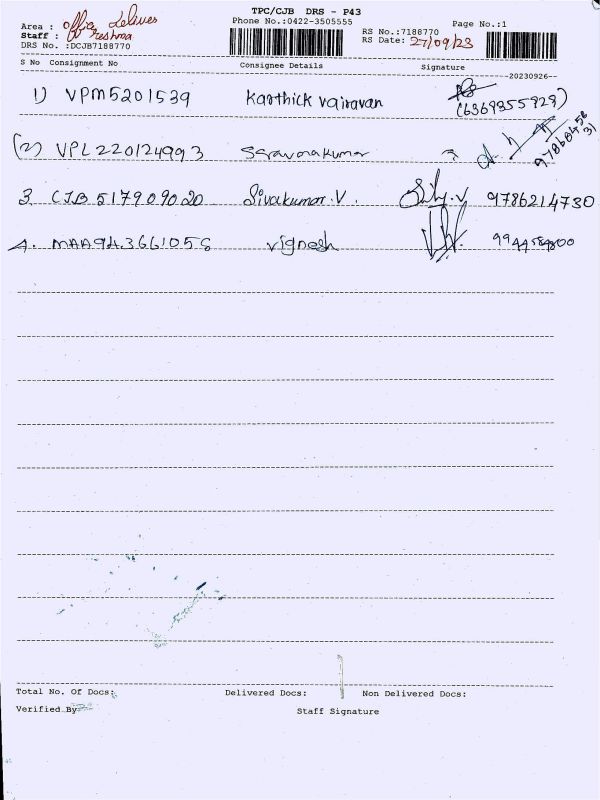 TPC/CJB DRS - P43
Phone No.:0422-3505555
Page No.:1
Area : office delives
Staff : Reshma
DRS No. :DCJB7188770
RS No.:7188770
RS Date: 27/09/23
S No Consignment No Consignee Details Signature
20230926
1) VPM5201539 Karthick vairavan (6369855928)
(2) VPL220124993 Saravanakumar
3. CJB517909020 Sivakumar.V. 9786214730
4. MAA943661056 vignesh
Total No. Of Docs: Delivered Docs: Non Delivered Docs:
Verified By Staff Signature